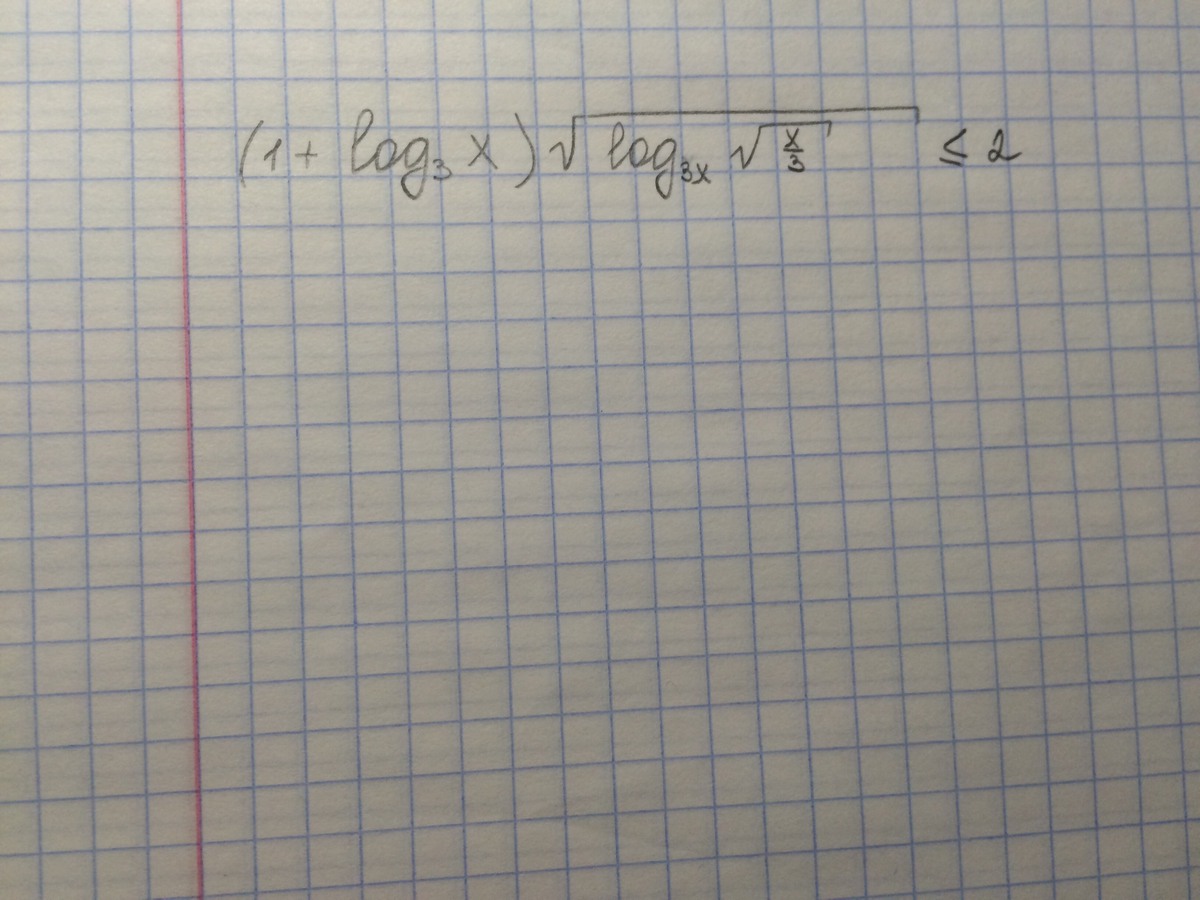 (1 + log₃ x) √(log₃ₓ √(x/3)) ≤ 2